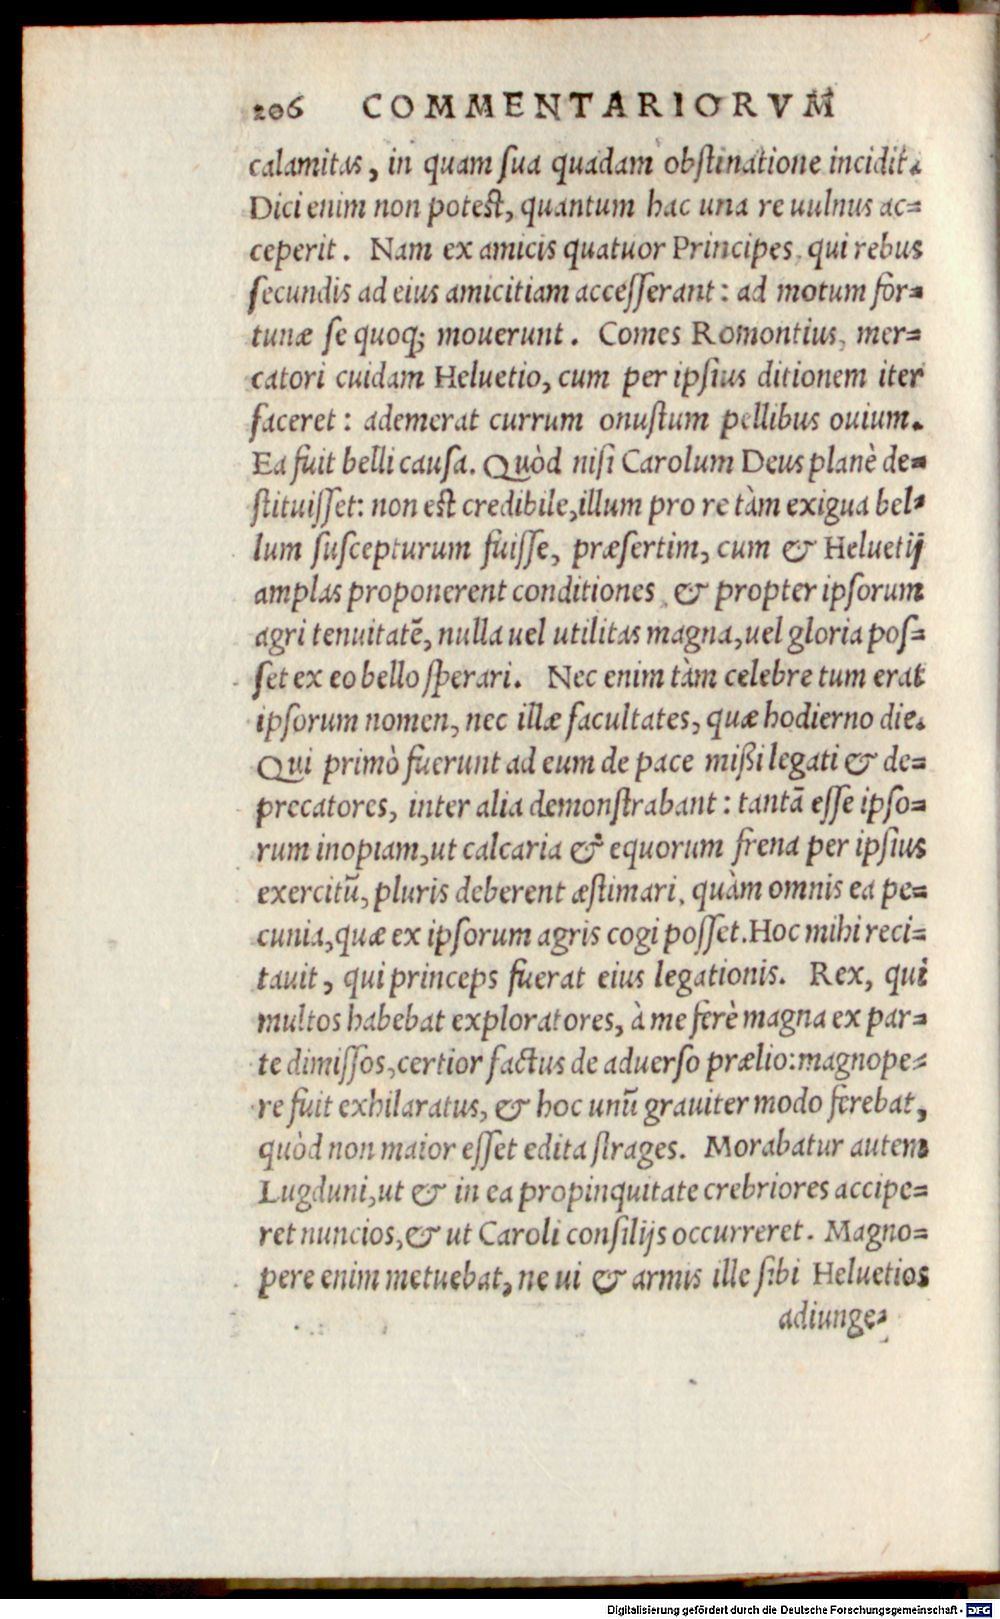 206 COMMENTARIORVM
calamitas, in quam sua quadam obstinatione incidit.
Dici enim non potest, quantum hac una re uulnus ac=
ceperit. Nam ex amicis quatuor Principes, qui rebus
secundis ad eius amicitiam accesserant: ad motum for=
tunæ se quoq; mouerunt. Comes Romontius, mer=
catori cuidam Heluetio, cum per ipsius ditionem iter
faceret: ademerat currum onustum pellibus ouium.
Ea fuit belli causa. Quòd nisi Carolum Deus planè de=
stituisset: non est credibile, illum pro re tàm exigua bel=
lum suscepturum fuisse, præsertim, cum & Heluetij
amplas proponerent conditiones, & propter ipsorum
agri tenuitatẽ, nulla uel utilitas magna, uel gloria pos=
set ex eo bello sperari. Nec enim tàm celebre tum erat
ipsorum nomen, nec illæ facultates, quæ hodierno die.
Qui primò fuerunt ad eum de pace mißi legati & de=
precatores, inter alia demonstrabant: tantã esse ipso=
rum inopiam, ut calcaria & equorum frena per ipsius
exercitũ, pluris deberent æstimari, quàm omnis ea pe=
cunia, quæ ex ipsorum agris cogi posset. Hoc mihi reci=
tauit, qui princeps fuerat eius legationis. Rex, qui
multos habebat exploratores, à me ferè magna ex par=
te dimissos, certior factus de aduerso prælio: magnope=
re fuit exhilaratus, & hoc unũ grauiter modo ferebat,
quòd non maior esset edita strages. Morabatur autem
Lugduni, ut & in ea propinquitate crebriores accipe=
ret nuncios, & ut Caroli consilijs occurreret. Magno=
pere enim metuebat, ne ui & armis ille sibi Heluetios
adiunge=
Digitalisierung gefördert durch die Deutsche Forschungsgemeinschaft - DFG